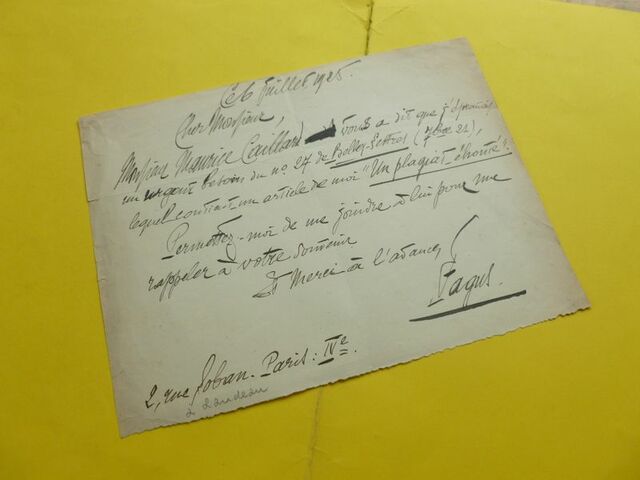 Ce 6 Juillet 1925.
Cher Monsieur,
Monsieur Maurice Caillard vous a dit que j'éprouvais
un urgent besoin du no 27 de Belles-Lettres (
lequel contient un article de moi "Un plagiat éhonté".
Permettez-moi de me joindre à lui pour me
rappeler à votre souvenir
Et Merci à l'avance,
Fagus.
2, rue Loban. Paris: IVe.
à Landeau